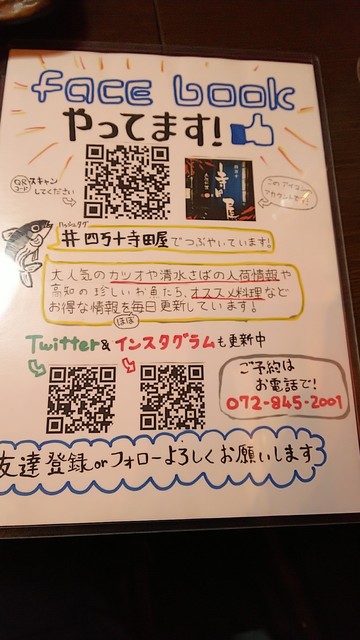 face book
やってます!
QRコード
スキャン
してください
このアイコン
アカウントです
ハッシュタグ
#四万十寺田屋でつぶやいています!
大人気のカツオや清水さばの入荷情報や
高知の珍しいお酒たち、オススメ料理など
お得な情報を毎日更新しています!
ほぼ
Twitter&インスタグラムも更新中
ご予約は
お電話で!
072-845-2001
友達登録orフォローよろしくお願いします